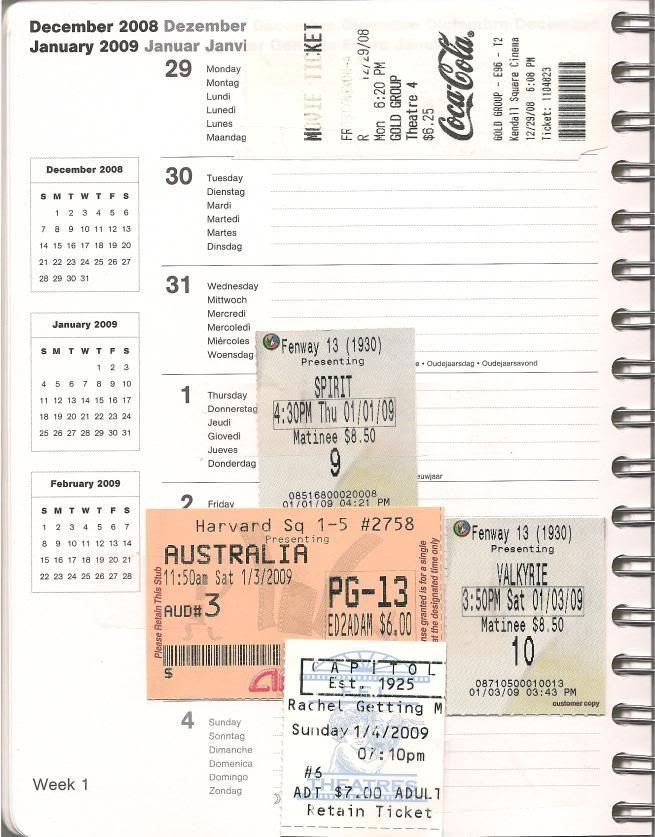 December 2008 Dezember
January 2009 Januar Janvi
29
Monday
Montag
Lundi
Lunedì
Lunes
Maandag
MOVIE TICKET
R 12/29/08
Mon 6:20 PM
GOLD GROUP
Theatre 4
$6.25
Coca-Cola
GOLD GROUP - E96 - T2
Kendall Square Cinema
12/29/08 6:08 PM
Ticket: 1104823
December 2008
S M T W T F S
1 2 3 4 5 6
7 8 9 10 11 12 13
14 15 16 17 18 19 20
21 22 23 24 25 26 27
28 29 30 31
30
Tuesday
Dienstag
Mardi
Martedì
Martes
Dinsdag
31
Wednesday
Mittwoch
Mercredi
Mercoledì
Miércoles
Woensdag
e • Oudejaarsdag • Oudejaarsavond
January 2009
S M T W T F S
1 2 3
4 5 6 7 8 9 10
11 12 13 14 15 16 17
18 19 20 21 22 23 24
25 26 27 28 29 30 31
Fenway 13 (1930)
Presenting
SPIRIT
4:30PM Thu 01/01/09
Matinee $8.50
9
08516800020008
01/01/09 04:21 PM
1
Thursday
Donnerstag
Jeudi
Giovedì
Jueves
Donderdag
euwjaar
February 2009
S M T W T F S
1 2 3 4 5 6 7
8 9 10 11 12 13 14
15 16 17 18 19 20 21
22 23 24 25 26 27 28
2
Friday
Harvard Sq 1-5 #2758
Presenting
AUSTRALIA
11:50am Sat 1/3/2009
AUD#3
PG-13
ED2ADAM $6.00
$
Please Retain This Stub
nse granted is for a single
at the designated time only
Fenway 13 (1930)
Presenting
VALKYRIE
3:50PM Sat 01/03/09
Matinee $8.50
10
08710500010013
01/03/09 03:43 PM
customer copy
CAPITOL
Est. 1925
Rachel Getting M
Sunday 1/4/2009
07:10pm
#6
THEATRES
ADT $7.00 ADULT
Retain Ticket
4
Sunday
Sonntag
Dimanche
Domenica
Domingo
Zondag
Week 1